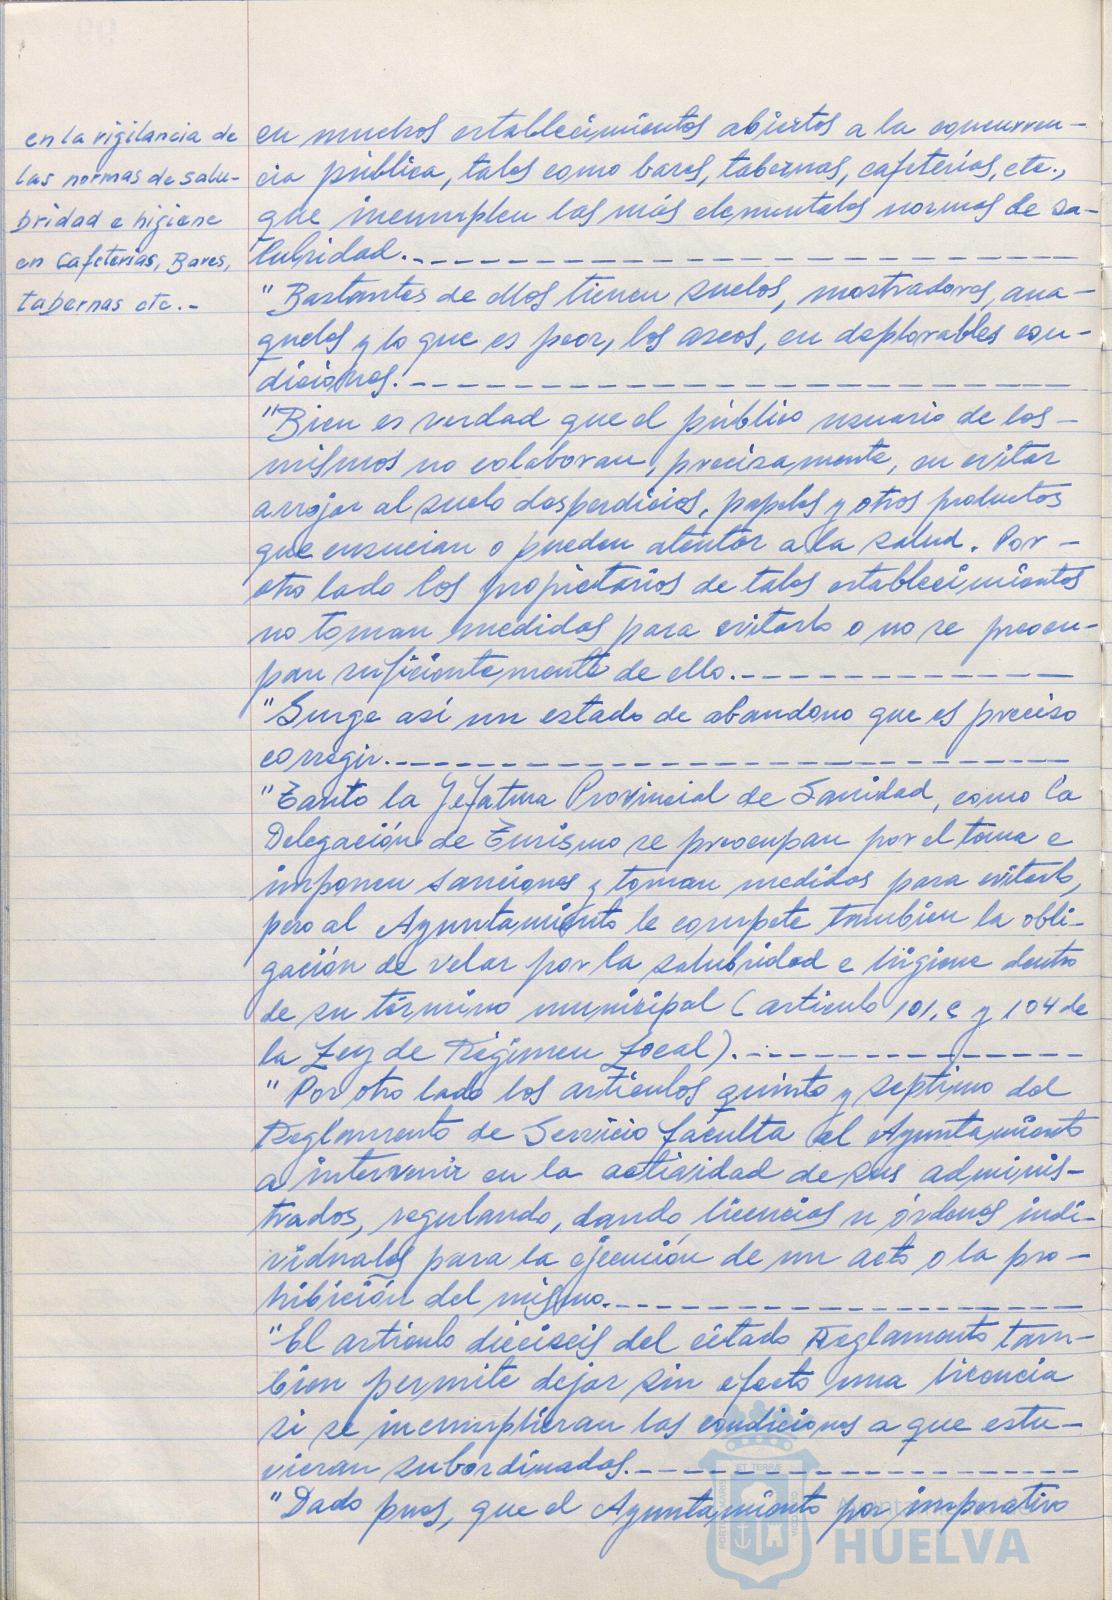 en la vigilancia de
las normas de salu-
bridad e higiene
en Cafeterias, Bares,
tabernas etc.-
en muchos establecimientos abiertos a la concurren-
cia pública, tales como bares, tabernas, cafeterias, etc.,
que incumplen las más elementales normas de sa-
lubridad.
"Bastantes de ellos tienen suelos, mostradores, ana-
queles y lo que es peor, los aseos, en deplorables con-
diciones.
"Bien es verdad que el público usuario de los
mismos no colaboran, precisamente, en evitar
arrojar al suelo desperdicios, papeles y otros productos
que ensucian o pueden atentar a la salud. Por
otro lado los propietarios de tales establecimientos
no toman medidas para evitarlo o no se preocu-
pan suficientemente de ello.
"Surge así un estado de abandono que es preciso
corregir.
"Tanto la Jefatura Provincial de Sanidad, como la
Delegación de Turismo se preocupan por el tema e
imponen sanciones y toman medidas para evitarlo,
pero al Ayuntamiento le compete tambien la obli-
gación de velar por la salubridad e higiene dentro
de su término municipal (articulo 101, c y 104 de
la Ley de Régimen Local).
"Por otro lado los articulos quinto y septimo del
Reglamento de Servicio faculta al Ayuntamiento
a intervenir en la actividad de sus adminis-
trados, regulando, dando licencias u órdenes indi-
viduales para la ejecución de un acto o la pro-
hibición del mismo.
"El articulo dieciseis del citado Reglamento tam-
bien permite dejar sin efecto una licencia
si se incumplieran las condiciones a que estu-
vieran subordinadas.
"Dado pues, que el Ayuntamiento por imperativo
ET TERRÆ
HUELVA